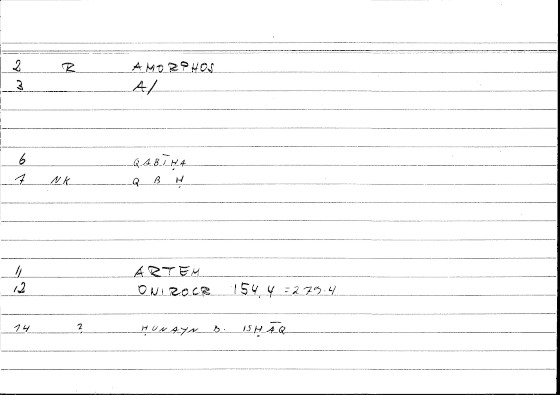 2 R AMORPHOS
3 A/
6 QABĪḤA
7 NK Q B Ḥ
11 ARTEM
12 ONIROCR 154,4 = 279.4
14 2 ḤUNAYN B. ISḤĀQ